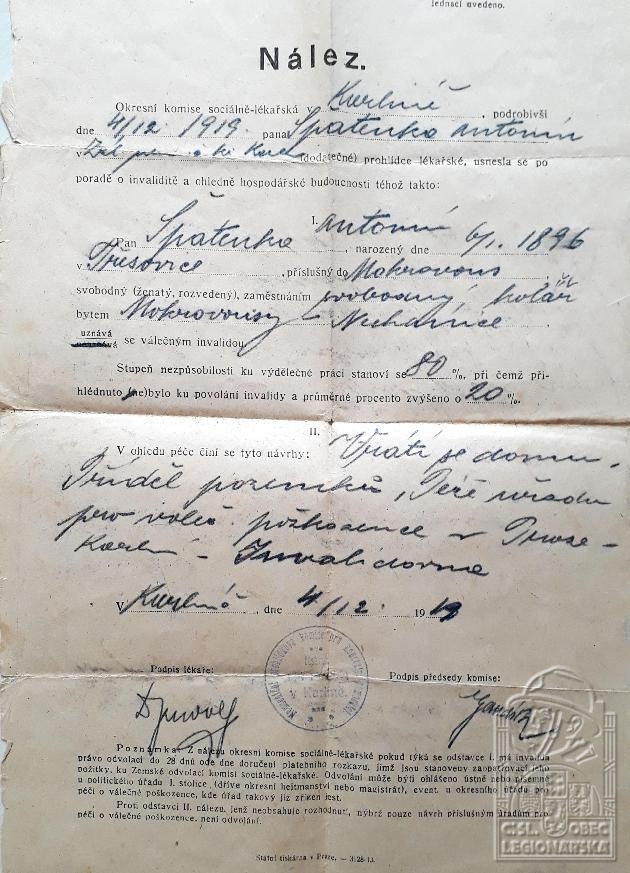 jednací uvedeno.
Nález.
Okresní komise sociálně-lékařská v Karlíně, podrobivši
dne 4/12. 1919. pana Špatenka Antonín
v (dodatečné) prohlídce lékařské, usnesla se po
poradě o invaliditě a ohledně hospodářské budoucnosti téhož takto:
I.
Pan Špatenka Antonín, narozený dne 6/1. 1896
v Třesovice, příslušný do Mokrovous,
svobodný (ženatý, rozvedený), zaměstnáním svobodný, kolář
bytem Mokrovousy - Nechanice
uznává
neuznává se válečným invalidou.
Stupeň nezpůsobilosti ku výdělečné práci stanoví se 80 %, při čemž při-
hlédnuto (ne)bylo ku povolání invalidy a průměrné procento zvýšeno o 20 %.
II.
V ohledu péče činí se tyto návrhy: Vrátí se domu.
Příděl pozemků, Péče úřadu
pro váleč. poškozence v Praze-
Karlín - Invalidovna
V Karlíně, dne 4/12. 1919
Podpis lékaře:
Podpis předsedy komise:
v Karlíně.
Poznámka: Z nálezu okresní komise sociálně-lékařské pokud týká se odstavce I. má invalida
právo odvolací do 28 dnů ode dne doručení platebního rozkazu, jímž jsou stanoveny zaopatřovací jeho
požitky, ku Zemské odvolací komisi sociálně-lékařské. Odvolání může býti ohlášeno ústně nebo písemně
u politického úřadu I. stolice, (dříve okresní hejtmanství nebo magistrát), event. u okresního úřadu pro
péči o válečné poškozence, kde úřad takový již zřízen jest.
Proti odstavci II. nálezu, jenž neobsahuje rozhodnutí, nýbrž pouze návrh příslušným úřadům pro
péči o válečné poškozence, není odvolání.
Státní tiskárna v Praze. — 3128-19.
ČSL. OBEC
LEGIONÁŘSKÁ